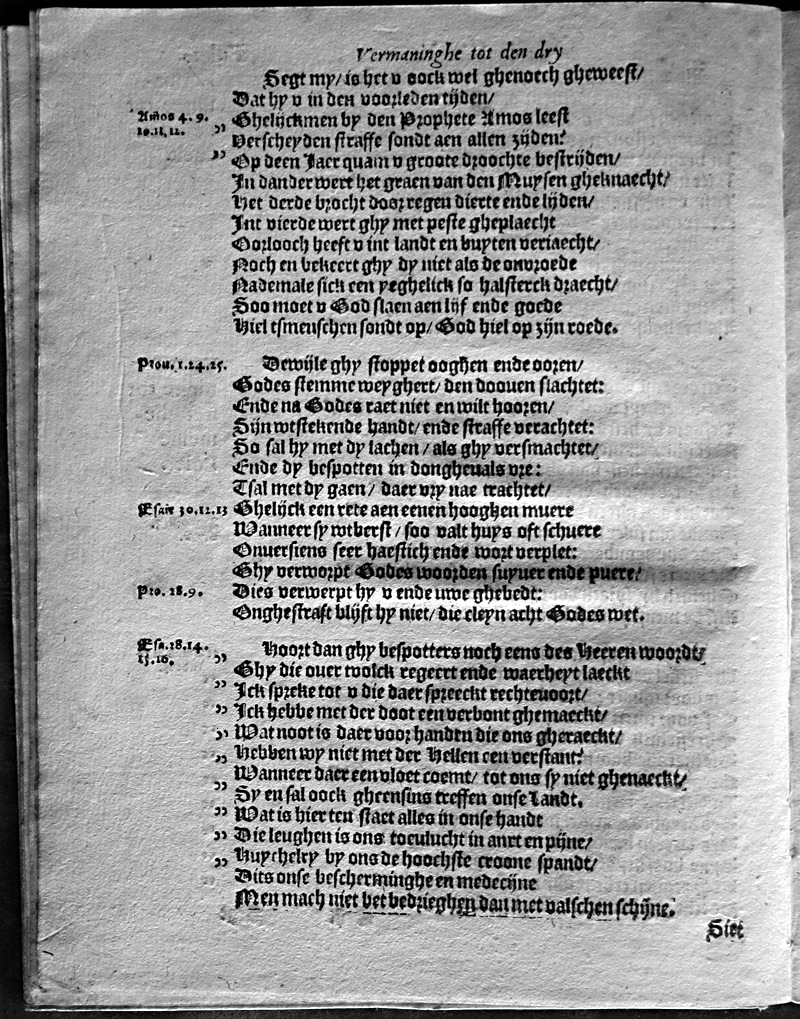 Vermaninghe tot den dry
Segt my/ is het v oock wel ghenoech gheweest/
Dat hy v in den voorleden tijden/
Amos 4. 9. 10.11.12. „ Ghelijckmen by den Prophete Amos leest
Verscheyden straffe sondt aen allen zijden?
„ Op deen Jaer quam v groote droochte bestrijden/
In dander wert het graen van den Muysen gheknaecht/
Het derde brocht door regen dierte ende lijden/
Int vierde wert ghy met peste gheplaecht
Oorlooch heeft v int landt en buyten veriaecht/
Noch en bekeert ghy dy niet als de onvroede
Nademale sick een yeghelick so halsterck draecht/
Soo moet v God slaen aen lijf ende goede
Hiel tsmenschen sondt op/ God hiel op zijn roede.
Prou. 1.24.25. Dewijle ghy stoppet ooghen ende ooren/
Godes stemme weyghert/ den doouen slachtet:
Ende na Godes raet niet en wilt hooren/
Sijn wtstekende handt/ ende straffe verachtet:
So sal hy met dy lachen/ als ghy versmachtet/
Ende dy bespotten in dongheuals vre:
Tsal met dy gaen/ daer vry nae trachtet/
Esaie 30.12.13 Ghelijck een rete aen eenen hooghen muere
Wanneer sy wtberst/ soo valt huys oft schuere
Onuersiens seer haestich ende wort verplet:
Ghy verworpt Godes woorden suyuer ende puere/
Pro. 28.9. Dies verwerpt hy v ende uwe ghebedt:
Onghestraft blijft hy niet/ die cleyn acht Godes wet.
Esa. 28.14. 15.16. „ Hoort dan ghy bespotters noch eens des Heeren woordt/
Ghy die ouer tvolck regeert ende waerheyt laeckt
„ Ick spreke tot v die daer spreeckt rechteuoort/
„ Ick hebbe met der doot een verbont ghemaeckt/
„ Wat noot is daer voor handen die ons gheraeckt/
„ Hebben wy niet met der Hellen een verstant?
„ Wanneer daer een vloet coemt/ tot ons sy niet ghenaeckt/
„ Sy en sal oock gheensins treffen onse Landt.
„ Wat is hier ten staet alles in onse handt
„ Die leughen is ons toeulucht in anxt en pijne/
„ Huychelry by ons de hoochste croone spandt/
Dits onse bescherminghe en medecijne
Men mach niet bet bedrieghen dan met valschen schijne.
Siet